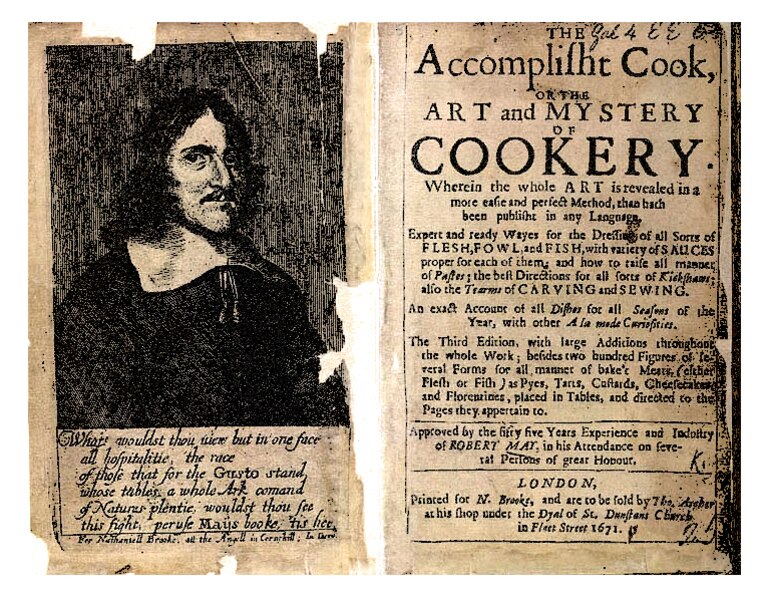 What wouldst thou view but in one face
all hospitalitie, the race
of those that for the Gusto stand,
whose tables a whole Ark comand
of Natures plentie, wouldst thou see
this sight, peruse Mays booke, tis hee.
For Nathaniell Brooke, att the Angell in Cornhill;
THE
Accomplisht Cook,
OR THE
ART and MYSTERY
OF
COOKERY.
Wherein the whole ART is revealed in a
more easie and perfect Method, than hath
been publisht in any Language.
Expert and ready Wayes for the Dressing of all Sorts of
FLESH, FOWL, and FISH, with variety of SAUCES
proper for each of them; and how to raise all manner
of Pastes; the best Directions for all sorts of Kickshaws;
also the Tearms of CARVING and SEWING.
An exact Account of all Dishes for all Seasons of the
Year, with other A la mode Curiosities.
The Third Edition, with large Additions throughout
the whole Work; besides two hundred Figures of se-
veral Forms for all manner of bake'd Meats, (either
Flesh or Fish) as Pyes, Tarts, Custards, Cheesecakes,
and Florentines, placed in Tables, and directed to the
Pages they appertain to.
Approved by the fifty five Years Experience and Industry
of ROBERT MAY, in his Attendance on seve-
ral Persons of great Honour.
LONDON,
Printed for N. Brooke, and are to be sold by Tho. Archer
at his shop under the Dyal of St. Dunstans Church
in Fleet Street 1671.